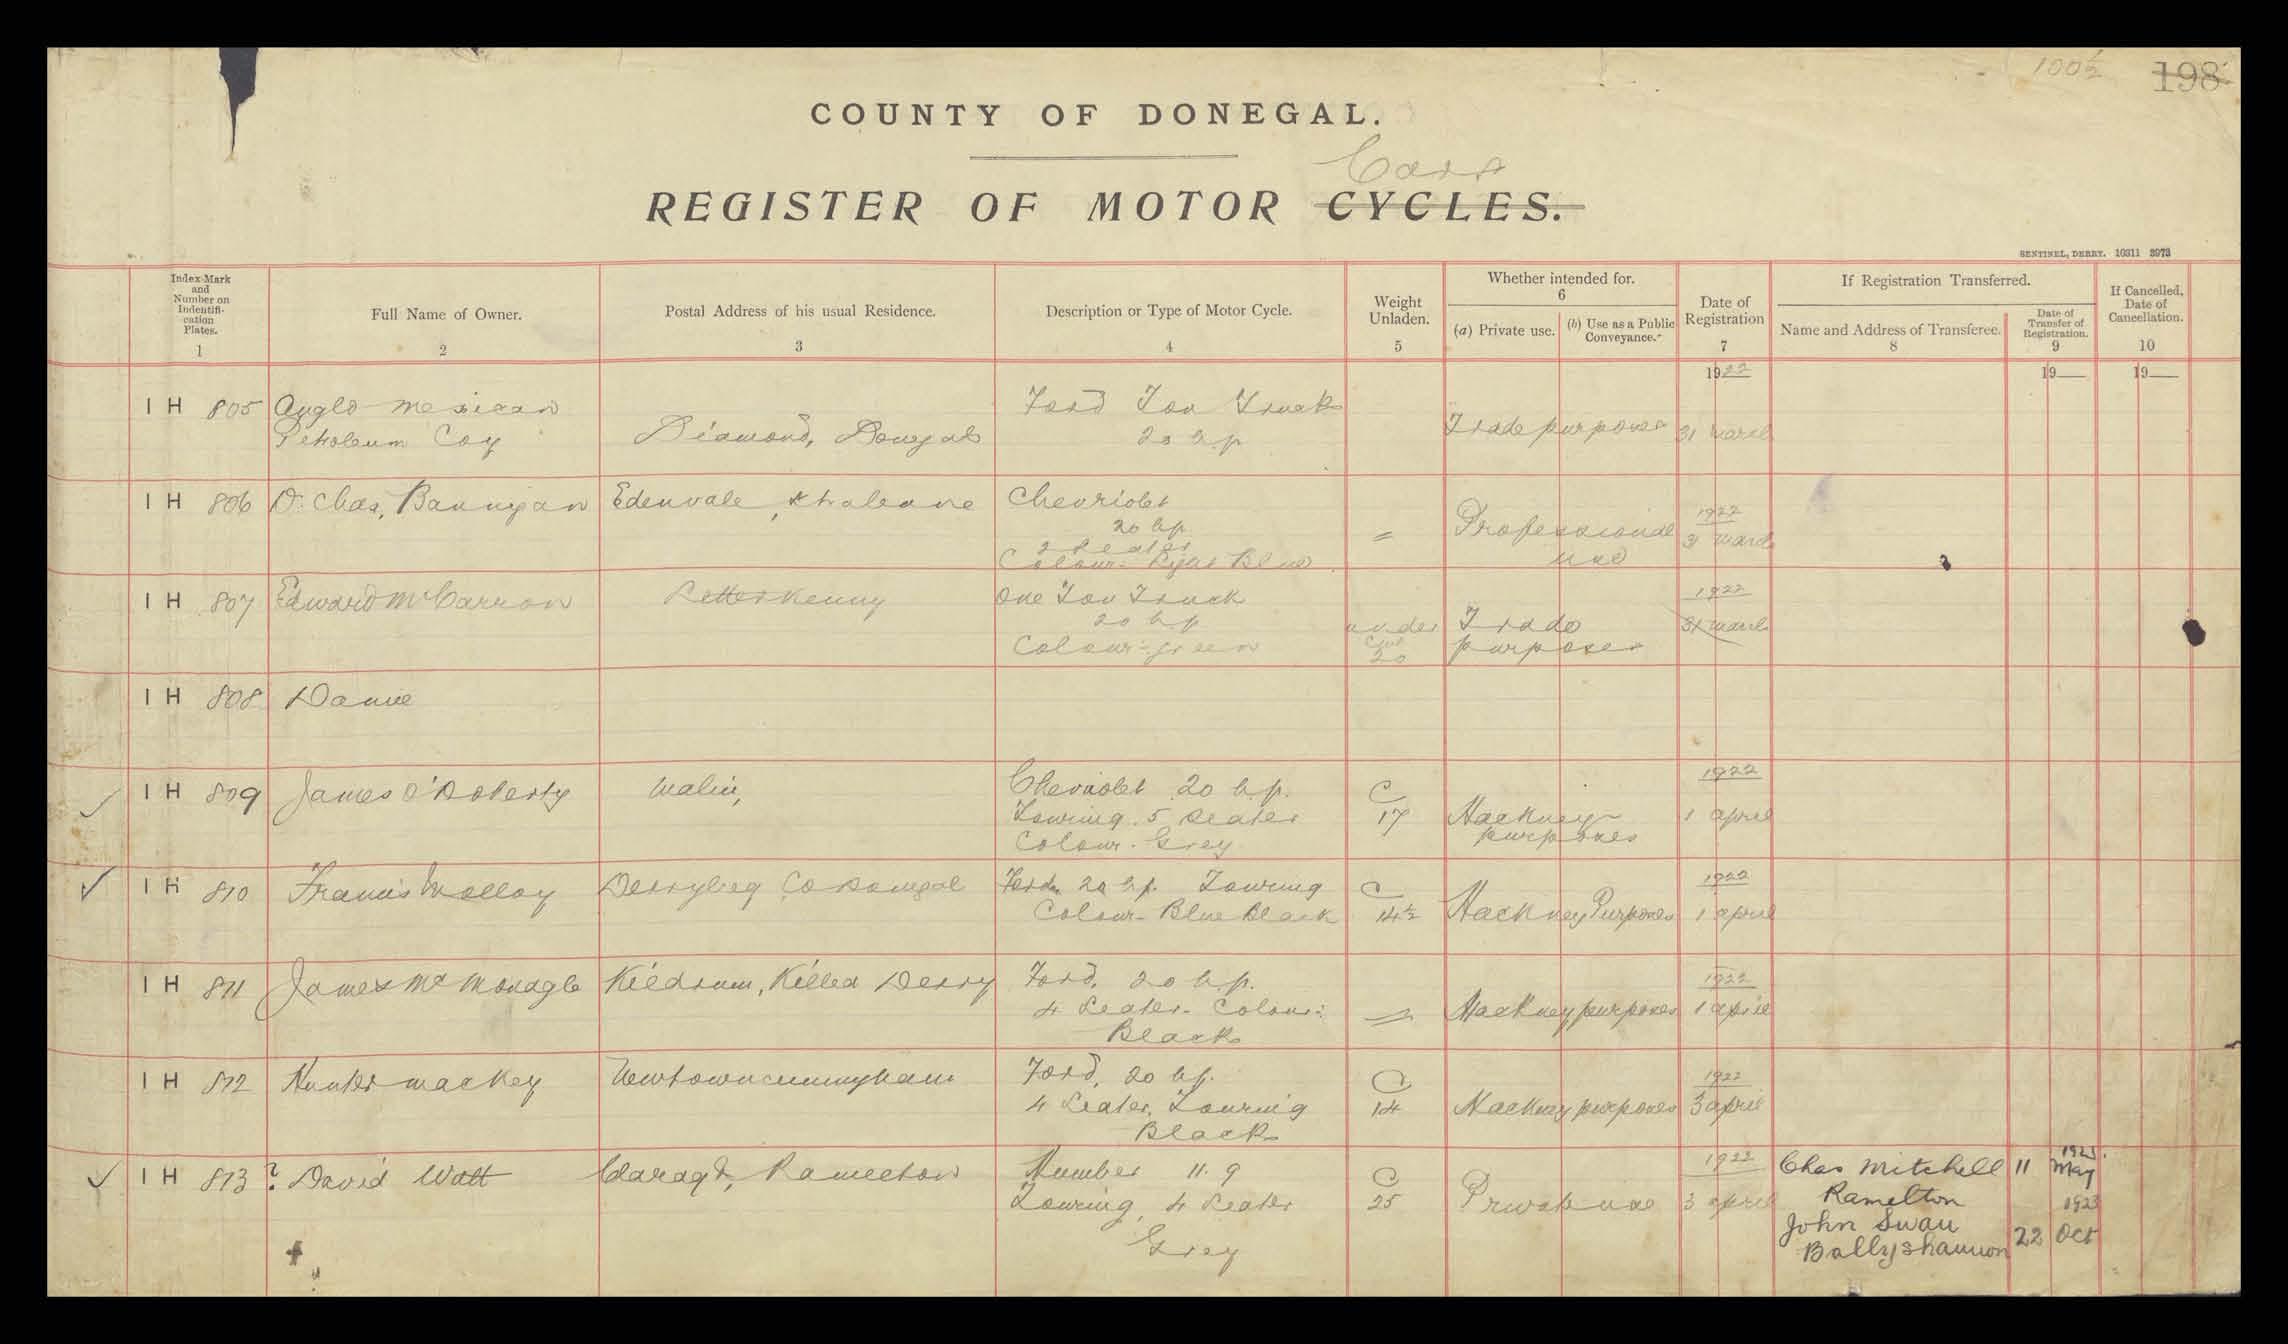 100½ 198
COUNTY OF DONEGAL.
Cars
REGISTER OF MOTOR CYCLES.
SENTINEL, DERRY. 10311 3973
Index-Mark and Number on Indentifi-cation Plates. 1
Full Name of Owner. 2
Postal Address of his usual Residence. 3
Description or Type of Motor Cycle. 4
Weight Unladen. 5
Whether intended for. 6
(a) Private use.
(b) Use as a Public Conveyance.
Date of Registration 7
If Registration Transferred.
Name and Address of Transferee. 8
Date of Transfer of Registration. 9
If Cancelled, Date of Cancellation. 10
1922 19 19
IH 805 Anglo Mexican Ford Ton Truck
Petroleum Coy Diamond, Donegal 20 h.p Trade purposes 31 March
IH 806 Dr Chas, Bannigan Edenvale, Chevriolet
20 h.p 1922
2 Seater = Professional 31 March
Colour- Light Blue use
IH 807 Edward McCarron Letterkenny One Ton Truck 1922
20 h.p under Trade 31 March
Colour:- green Cwt 20 purposes
IH 808 Damie
IH 809 James O'Doherty Malin, Chevriolet 20 h.p. C 1922
Touring. 5 Seater 17 Hackney 1 April
Colour. Grey purposes
IH 810 Francis Molloy Derrybeg Co Donegal Ford 20 h.p. Touring C 1922
Colour- Blue Black 14½ Hackney Purposes 1 April
IH 811 James McMonagle Kildrum, Killea Derry Ford, 20 h.p. 1922
4 Seater- Colour:- = Hackney purposes 1 April
Black
IH 812 Hunter Mackey Newtowncunningham Ford, 20 h.p. C 1922
4 Seater, Touring 14 Hackney purposes 3 April
Black
IH 813 ? David Watt Claragh, Ramelton Humber 11.9 C 1922 Chas Mitchell 11 May
Touring, 4 Seater 25 Private use 3 April Ramelton 1923
Grey John Swan
Ballyshannon 22 Oct